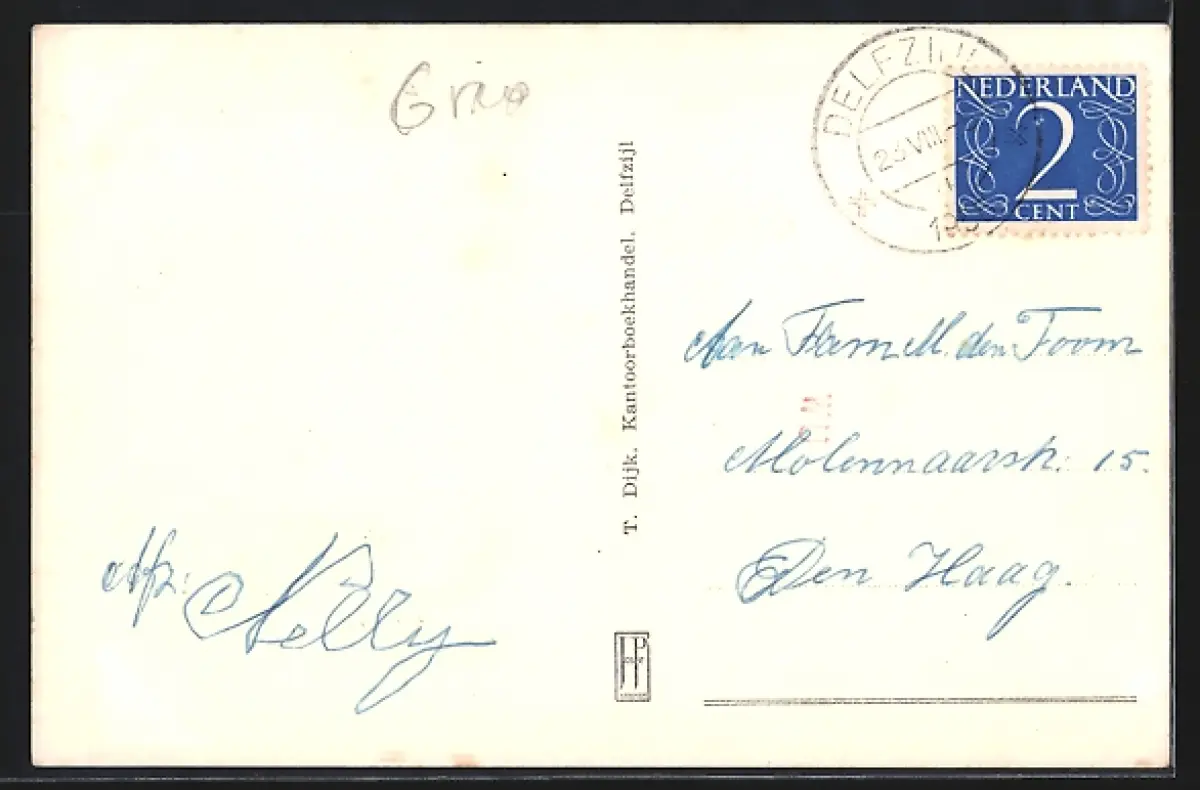 DELFZIJL
23 VIII
195
NEDERLAND
2
CENT
T. Dijk. Kantoorboekhandel. Delfzijl
Aan Fam M. den Toom
Molennaarstr. 15.
Den Haag.
Afz: Nelly